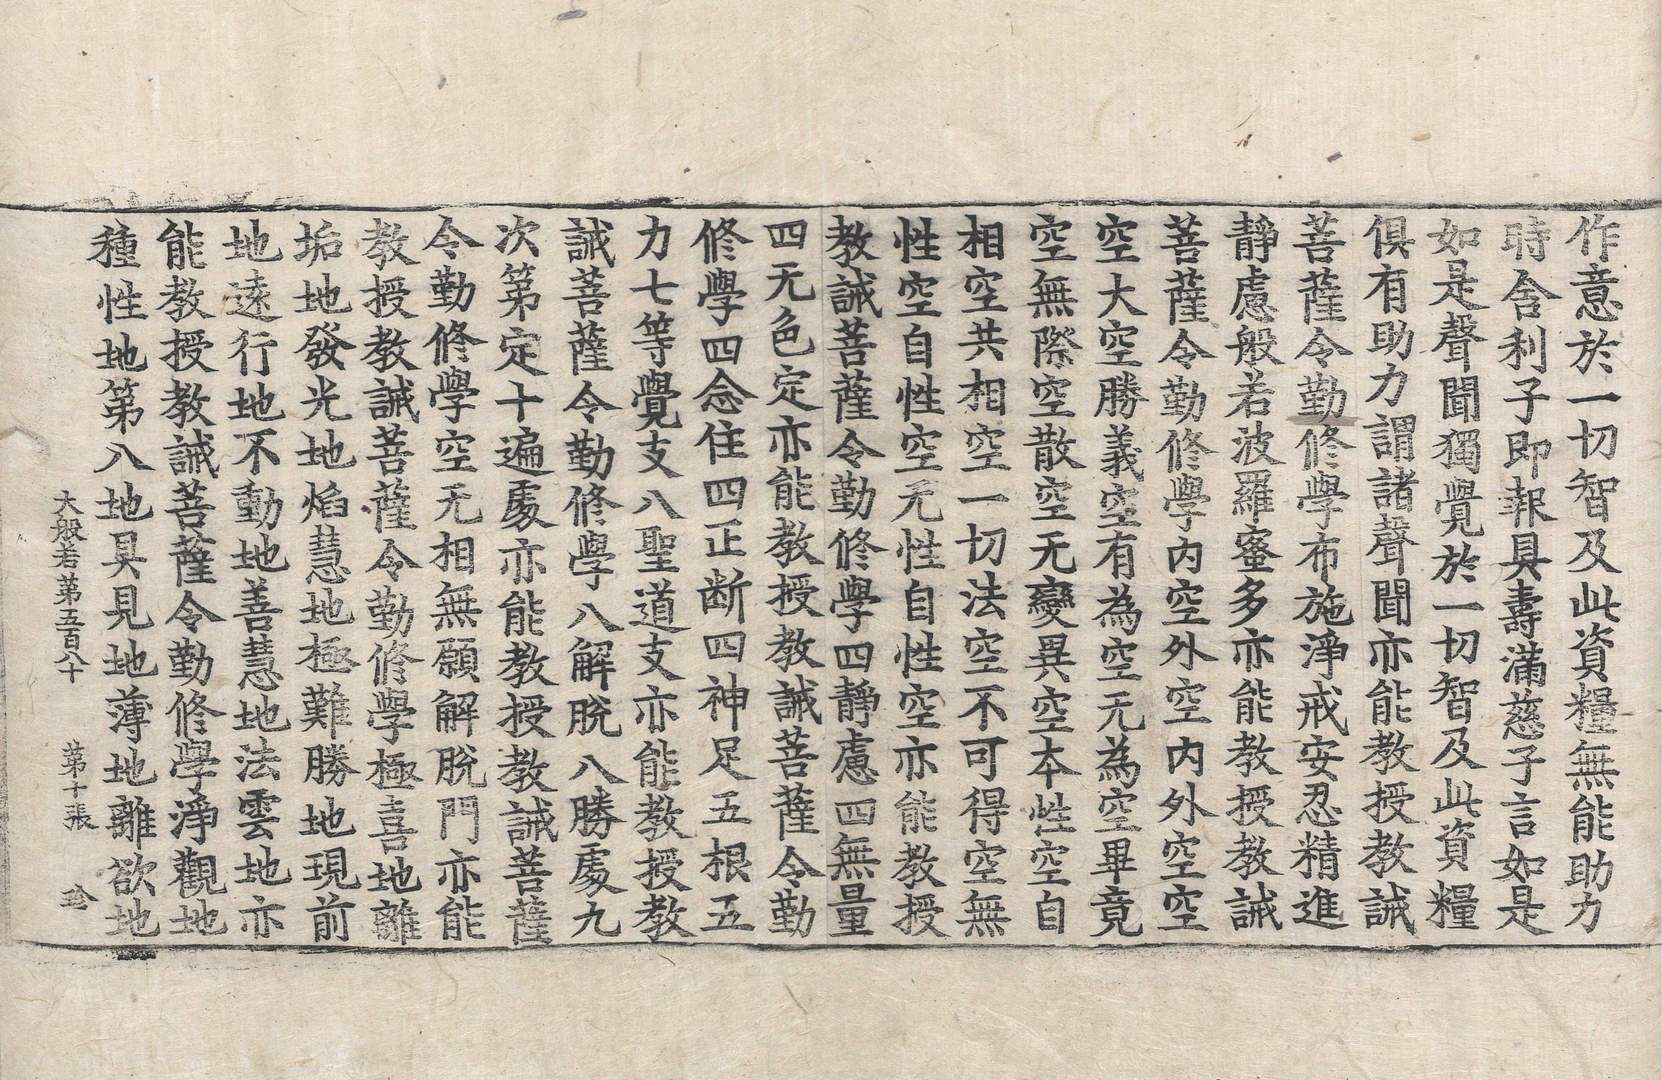 作意於一切智及此資糧無能助力
時舍利子即報具壽滿慈子言如是
如是聲聞獨覺於一切智及此資糧
俱有助力謂諸聲聞亦能教授教誡
菩薩令勤修學布施淨戒安忍精進
靜慮般若波羅蜜多亦能教授教誡
菩薩令勤修學内空外空内外空空
空大空勝義空有為空无為空畢竟
空無際空散空无變異空本性空自
相空共相空一切法空不可得空無
性空自性空无性自性空亦能教授
教誡菩薩令勤修學四靜慮四無量
四无色定亦能教授教誡菩薩令勤
修學四念住四正断四神足五根五
力七等覺支八聖道支亦能教授教
誡菩薩令勤修學八解脫八勝處九
次第定十遍處亦能教授教誡菩薩
令勤修學空无相無願解脫門亦能
教授教誡菩薩令勤修學極喜地離
垢地發光地焰慧地極難勝地現前
地遠行地不動地善慧地法雲地亦
能教授教誡菩薩令勤修學淨觀地
種性地第八地具見地薄地離欲地
大般若第五百八十 第十張 珍